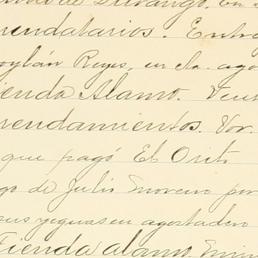 de Durango. En
endatarios. Entre
oylán Reyes, en cta. ago
ienda Alamo.
rendamientos. Vor.
que pagó El Orito
go de Julio Moreno por
sus yeguas en agostadero
Tienda Alamo.